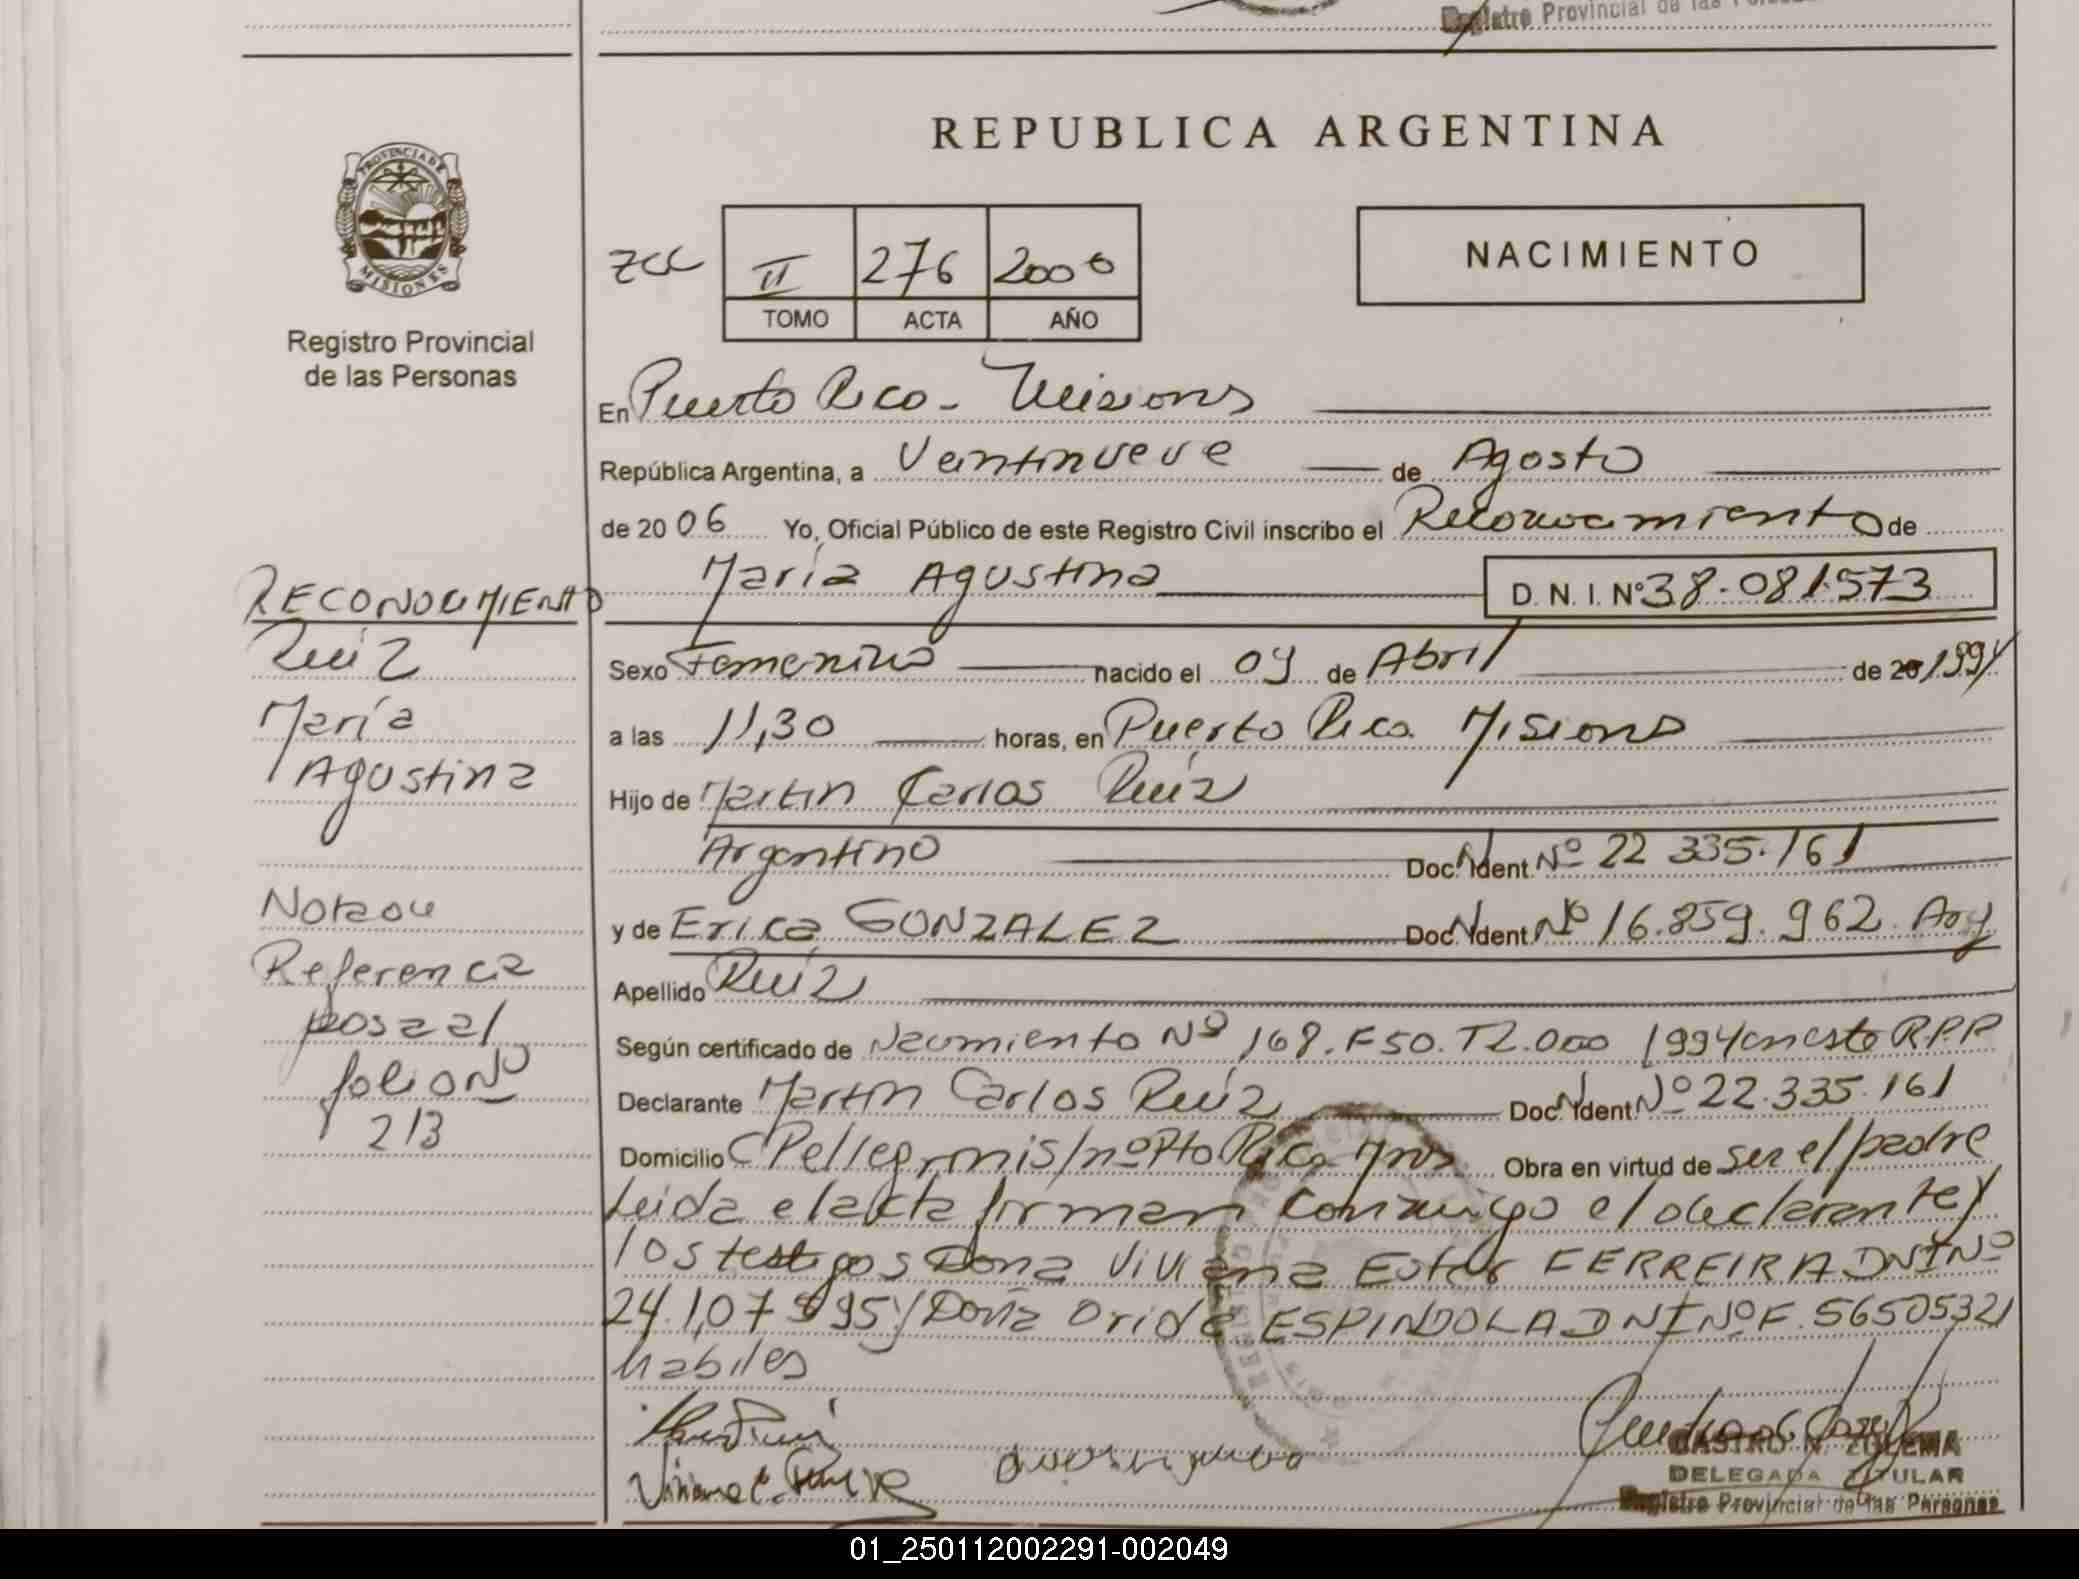 Registro Provincial de las
REPUBLICA ARGENTINA
PROVINCIA DE
MISIONES
Registro Provincial
de las Personas
II 276 2006
TOMO ACTA AÑO
NACIMIENTO
En Puerto Rico - Misiones
República Argentina, a Veintinueve de Agosto
de 2006 Yo, Oficial Público de este Registro Civil inscribo el Reconocimiento de
María Agustina D. N. I. Nº 38.081.573
RECONOCIMIENTO
Ruíz
María
Agustina
Nota de
Referencia
posa al
folio Nº
213
Sexo Femenino nacido el 04 de Abril de 20 1994
a las 11,30 horas, en Puerto Rico Misiones
Hijo de Martín Carlos Ruíz
Argentino Doc. Ident. Nº 22 335.161
y de Erica GONZALEZ Doc. Ident. Nº 16.859.962. Arg
Apellido Ruíz
Según certificado de Nacimiento Nº 168. F 50. T2. 1994 en este RPP
Declarante Martín Carlos Ruíz Doc. Ident. Nº 22.335.161
Domicilio C Pellegrini s/nº Pto Rico Mnes Obra en virtud de ser el padre
Leida el acta firman conmigo el declarante y
los testigos Doña Viviana Ester FERREIRA DNI Nº
24.107 995 y Doña Orida ESPINDOLA DNI Nº F. 5650532
habiles
CASTRO N. ZULEMA
DELEGADA TITULAR
Registro Provincial de las Personas
01_250112002291-002049